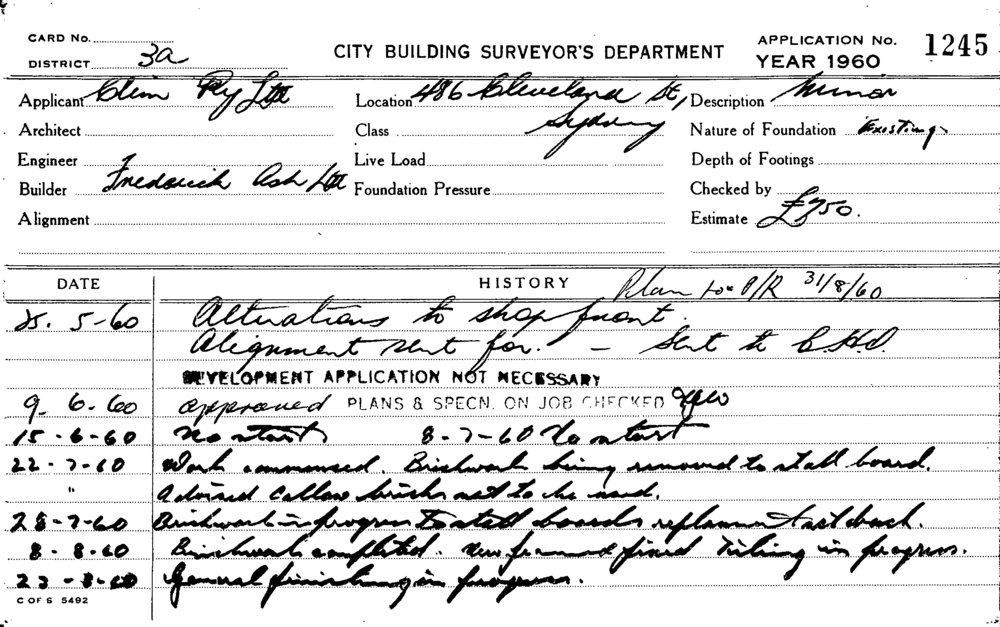 CARD No.
DISTRICT 3a
CITY BUILDING SURVEYOR'S DEPARTMENT
APPLICATION No. 1245
YEAR 1960
Applicant Clim Pty Ltd
Location 486 Cleveland St, Sydney
Description Minor
Architect
Class
Nature of Foundation Existing
Engineer
Live Load
Depth of Footings
Builder Frederick Ash Ltd
Foundation Pressure
Checked by
Alignment
Estimate £750.
DATE HISTORY Plan to P/R 31/8/60
25. 5-60 Alterations to shop front.
Alignment sent for. - Sent to C.H.O.
DEVELOPMENT APPLICATION NOT NECESSARY
9. 6. 60 approved PLANS & SPECN. ON JOB CHECKED
15-6-60 No start 8-7-60 No start
22-7-60 Work commenced. Brickwork being removed to stall board.
" Advised callow bricks not to be used.
28-7-60 Brickwork in progress to stall boards
8-8-60 Brickwork completed. New fixed Tiling in progress.
23-8-60 General finishing in progress.
C OF S 5492